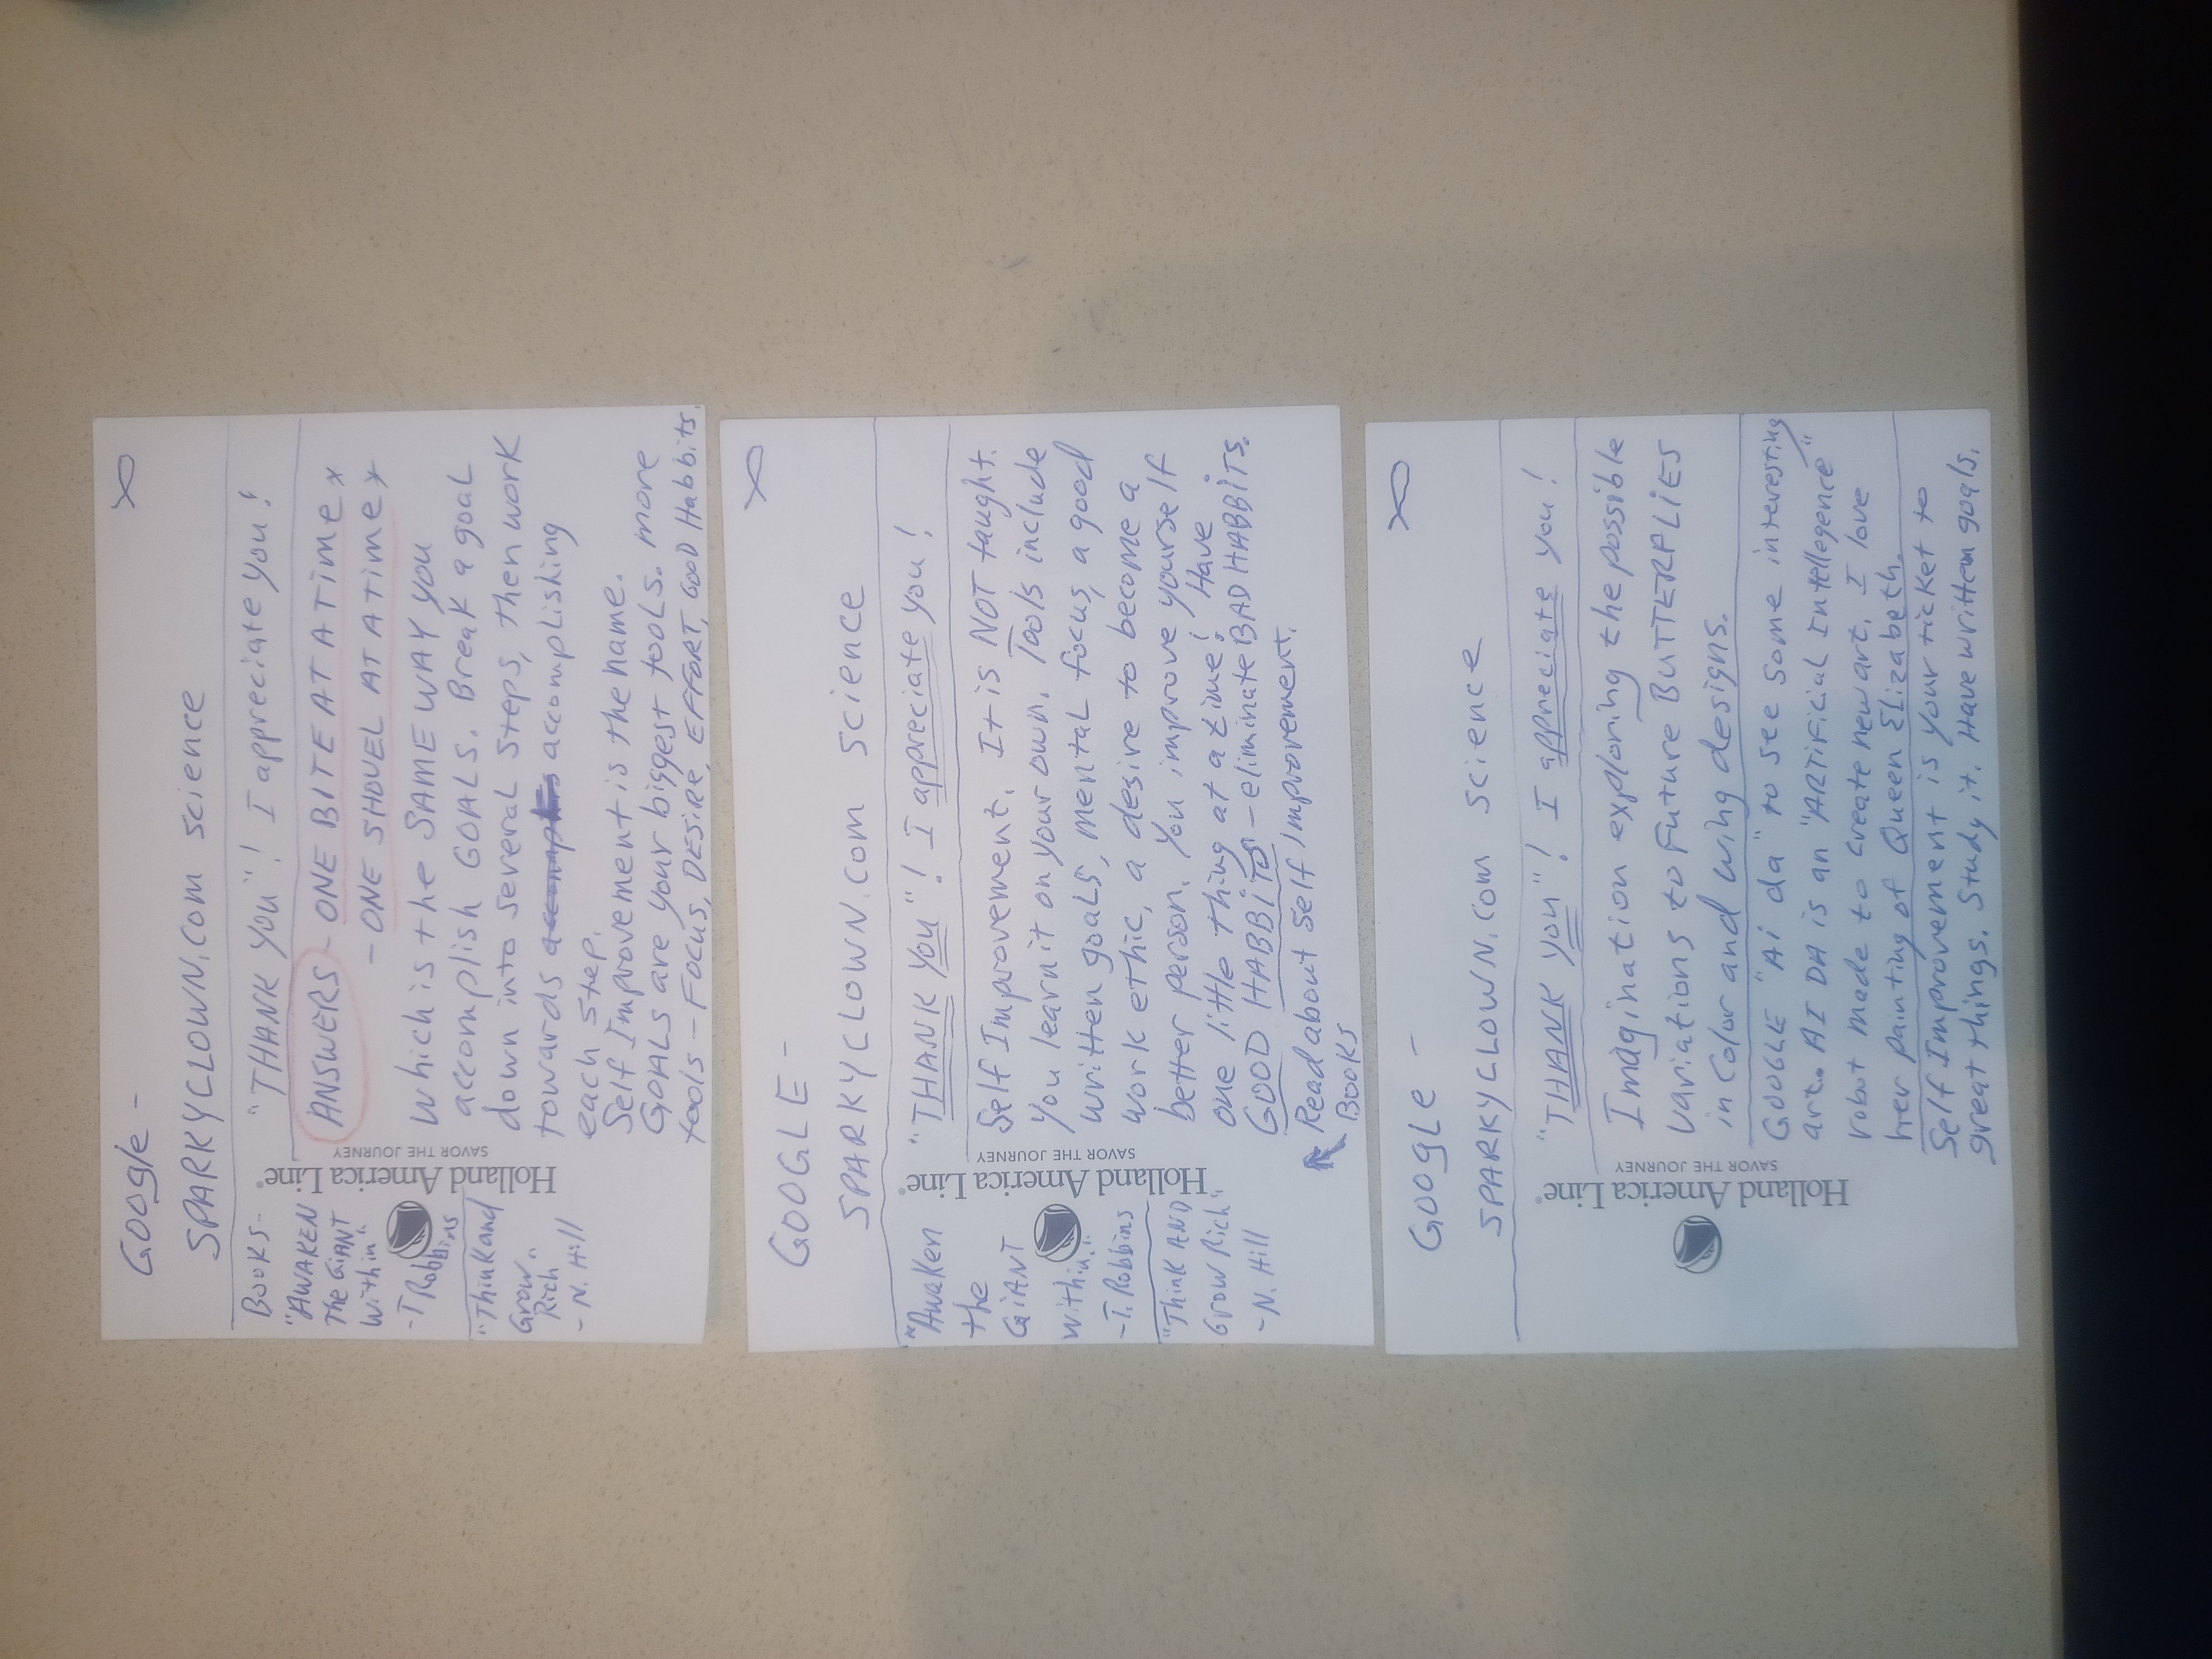 Google -
SPARKYCLOWN.com science
"THANK you"! I appreciate you!
ANSWERS - ONE BITE AT A Time *
- ONE SHOVEL AT A Time *
Which is the SAME WAY you
accomplish GOALS. Break a goal
down into several steps, then work
towards accomplishing
each step.
Self Improvement is the name.
GOALS are your biggest tools. more
tools - Focus, DESiRe, EFFORT, GooD Habbits.
BOOKS -
"AWAKEN
The GiANT
within"
- T Robbins
"Think and
Grow
Rich"
- N. Hill
Holland America Line®
SAVOR THE JOURNEY
GOOGLE -
SPARKYCLOWN.com Science
"THANK you"! I appreciate you!
Self Improvement. It is NOT taught.
You learn it on your own. Tools include
written goals, mental focus, a good
work ethic, a desire to become a
better person. You improve yourself
one little thing at a time! Have
GOOD HABBiTS - eliminate BAD HABBiTS.
Read about Self Improvement.
Books
"Awaken
the
GiANT
within."
- T. Robbins
"Think AND
Grow Rich"
- N. Hill
Holland America Line®
SAVOR THE JOURNEY
GOOgLe -
SPARKYCLOWN.Com Science
"THANK you"! I appreciate you!
Imagination exploring the possible
variations to Future BUTTERFLiES
in Color and wing designs.
GOOGLE "Ai da" to see some interesting
art. AI DA is an "ARTiFiCiAL Intellegence"
robot made to create new art. I love
her painting of Queen Elizabeth.
Self Improvement is your ticket to
great things. Study it. Have written goals.
Holland America Line®
SAVOR THE JOURNEY